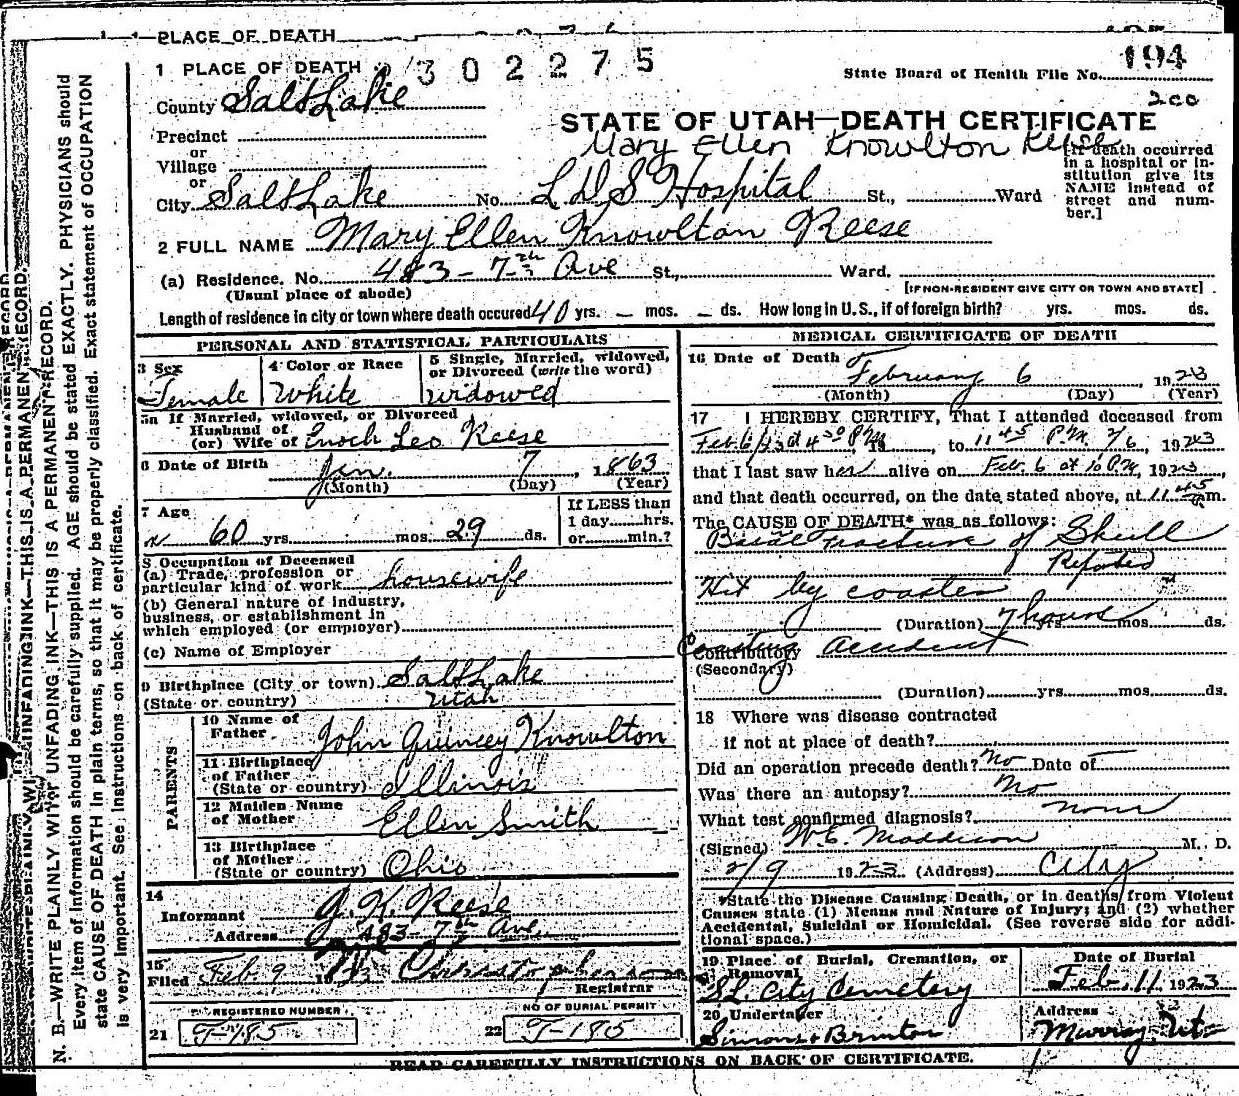 PLACE OF DEATH
1 PLACE OF DEATH 302275
State Board of Health File No. 194
County Salt Lake
200
STATE OF UTAH—DEATH CERTIFICATE
Precinct
Mary Ellen Knowlton
or
Village
or
City Salt Lake No. L D S Hospital St., Ward
[If death occurred
in a hospital or in-
stitution give its
NAME instead of
street and num-
ber.]
2 FULL NAME Mary Ellen Knowlton Reese
(a) Residence. No. 483 - 7th Ave St., Ward.
(Usual place of abode) [IF NON-RESIDENT GIVE CITY OR TOWN AND STATE]
Length of residence in city or town where death occured 40 yrs. — mos. — ds. How long in U.S., if of foreign birth? yrs. mos. ds.
PERSONAL AND STATISTICAL PARTICULARS
3 Sex
Female
4 Color or Race
White
5 Single, Married, widowed,
or Divorced (write the word)
widowed
5a If Married, widowed, or Divorced
Husband of
(or) Wife of Enoch Leo Reese
6 Date of Birth Jan. 7, 1863
(Month) (Day) (Year)
7 Age
60 yrs. mos. 29 ds.
If LESS than
1 day......hrs.
or......min.?
8 Occupation of Deceased
(a) Trade, profession or
particular kind of work housewife
(b) General nature of industry,
business, or establishment in
which employed (or employer)
(c) Name of Employer
9 Birthplace (City or town) Salt Lake
(State or country) Utah
PARENTS
10 Name of
Father John Quincey Knowlton
11 Birthplace
of Father
(State or country) Illinois
12 Maiden Name
of Mother Ellen Smith
13 Birthplace
of Mother
(State or country) Ohio
14
Informant J. K. Reese
Address 483 - 7th Ave.
15
Filed Feb 9 1923 Christopherson
Registrar
REGISTERED NUMBER
21
NO OF BURIAL PERMIT
22 T-185
MEDICAL CERTIFICATE OF DEATH
16 Date of Death
February 6 1923
(Month) (Day) (Year)
17 I HEREBY CERTIFY, That I attended deceased from
Feb 6/23 at 4 30 P.M., to 11 45 P.M. 2/6, 1923
that I last saw her alive on Feb. 6 at 10 P.M, 1923,
and that death occurred, on the date stated above, at 11 45 m.
The CAUSE OF DEATH* was as follows:
Fracture of Skull
Hit by coaster
(Duration) 7 hours yrs. mos. ds.
Contributory Coasting accident
(Secondary)
(Duration) yrs. mos. ds.
18 Where was disease contracted
if not at place of death?
Did an operation precede death? No Date of
Was there an autopsy? No
What test confirmed diagnosis? none
(Signed) W. E. Maddison M. D.
2/9 1923 (Address) City
*State the Disease Causing Death, or in deaths from Violent
Causes state (1) Means and Nature of Injury; and (2) whether
Accidental, Suicidal or Homicidal. (See reverse side for addi-
tional space.)
19 Place of Burial, Cremation, or
Removal
S L. City Cemetery
Date of Burial
Feb. 11 1923
20 Undertaker
Address
Murray, Ut
READ CAREFULLY INSTRUCTIONS ON BACK OF CERTIFICATE.
N. B.—WRITE PLAINLY WITH UNFADING INK—THIS IS A PERMANENT RECORD.
Every item of Information should be carefully supplied. AGE should be stated EXACTLY. PHYSICIANS should
state CAUSE OF DEATH in plain terms, so that it may be properly classified. Exact statement of OCCUPATION
is very important. See instructions on back of certificate.